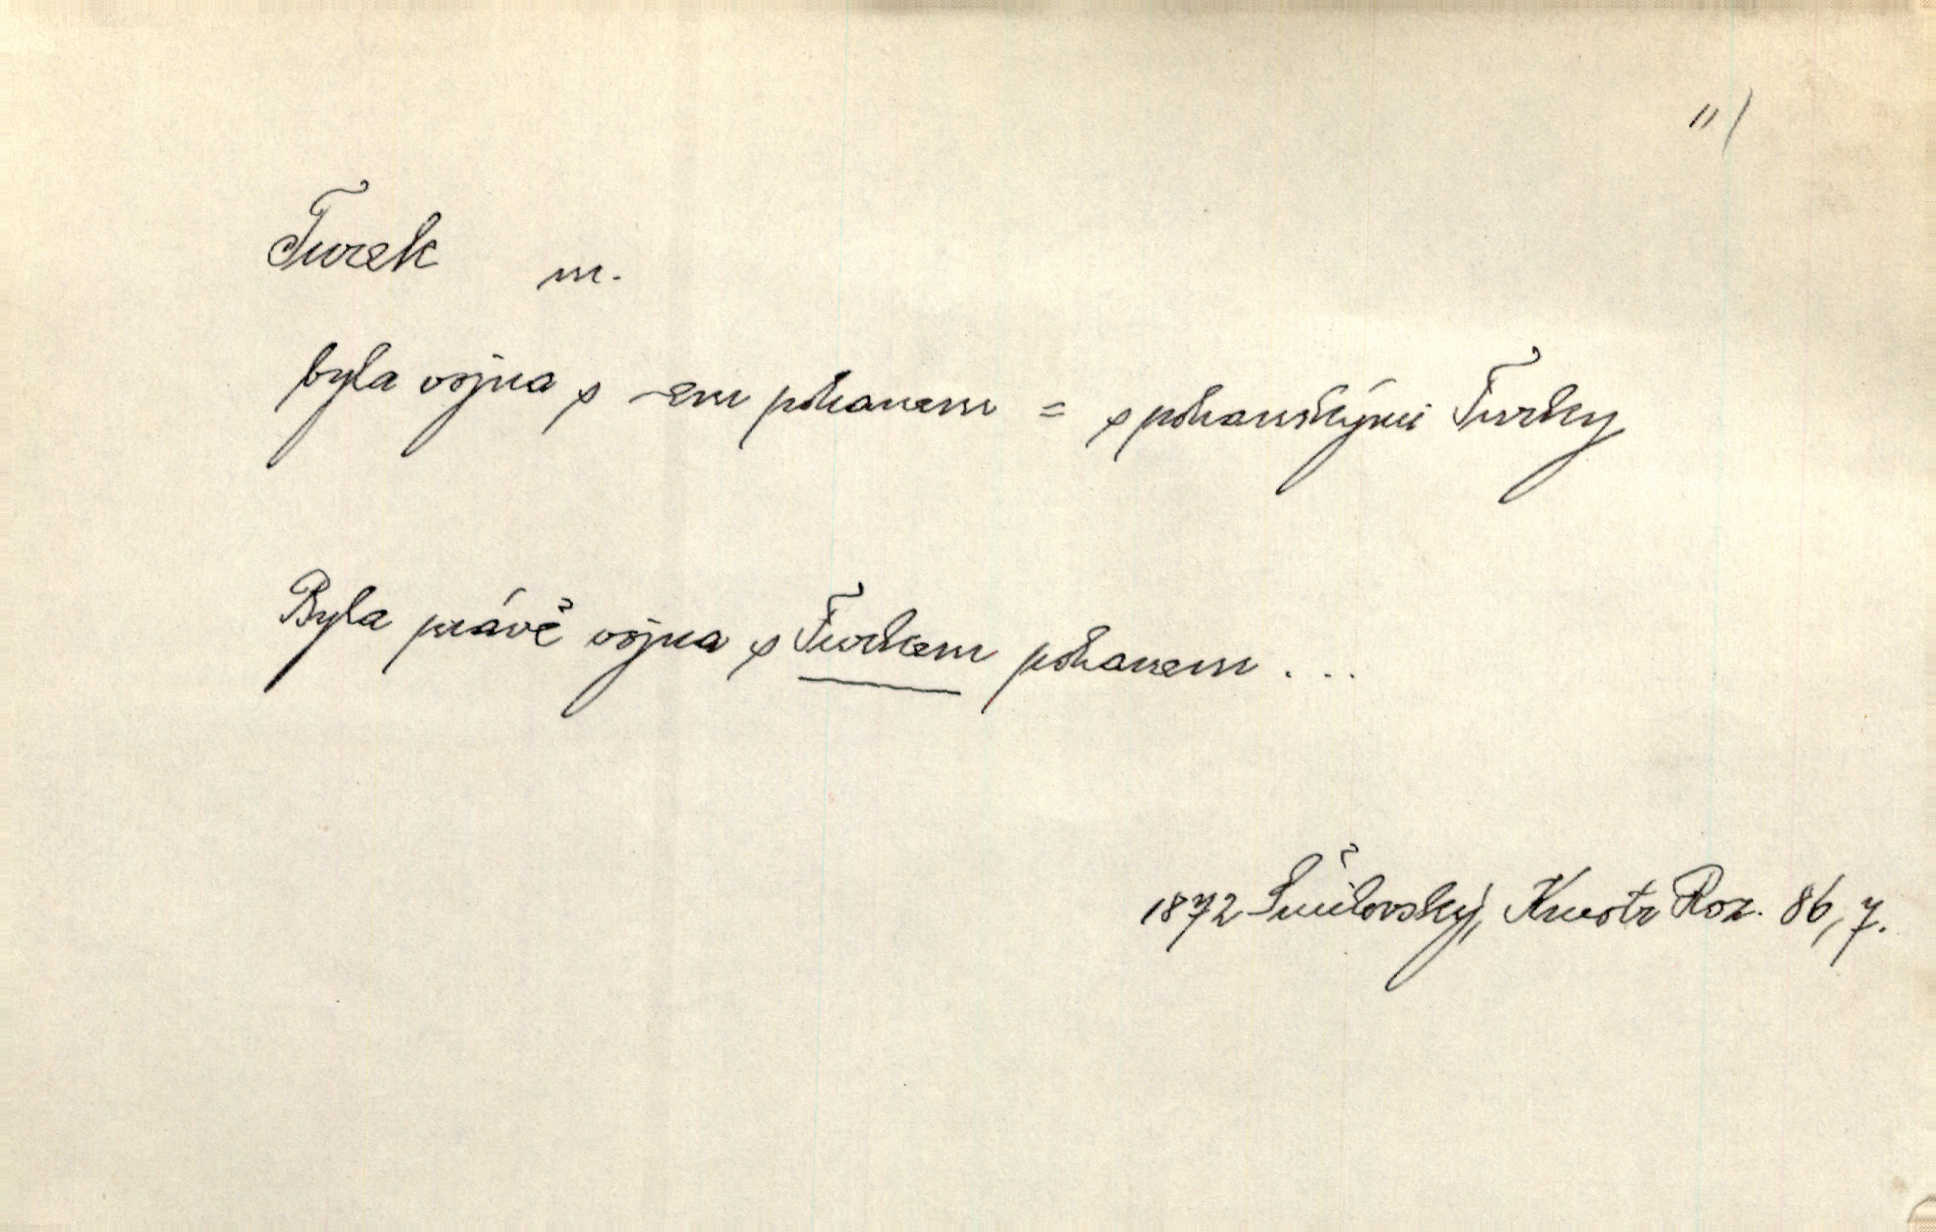 11/
Turek m.
byla vojna s -em pohanem = s pohanskými Turky
Byla právě vojna s Turkem pohanem...
1872 Šmilovský, Kmotr Roz. 86, 7.